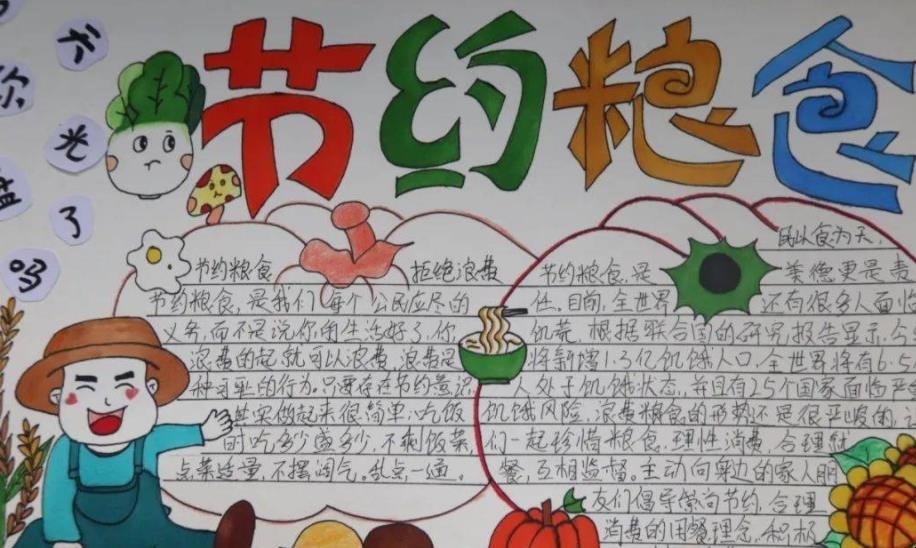 节约粮食
光
了
吗
你
节约粮食 拒绝浪费
节约粮食,是我们每个公民应尽的
义务,而不是说你的生活好了,你
浪费的起就可以浪费,浪费是
种可耻的行为。只要存在节约意识,
其实做起来很简单:吃饭
时吃多少盛多少,不剩饭菜,
点菜适量,不摆阔气。乱点一通。
民以食为天,
节约粮食,是 美德更是责
任。目前,全世界 还有很多人面临
饥荒。根据联合国的研究报告显示,今
将新增1.3亿饥饿人口,全世界将有6.5
人处于饥饿状态,并且有25个国家面临严
饥饿风险。浪费粮食的形势还是很严峻的,
们一起珍惜粮食,理性消费,合理
餐,互相监督。主动向身边的家人朋
友们倡导崇尚节约,合理
消费的用餐理念,积极